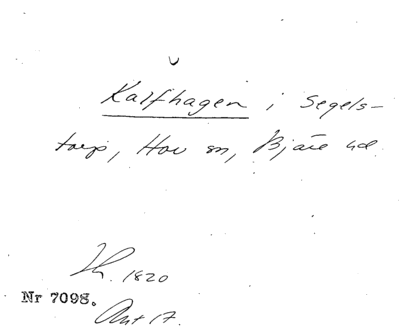 Kalfhagen i Segels-
torp, Hov sn, Bjäre hd
Th. 1820
Nr 7098.
Ant 17.